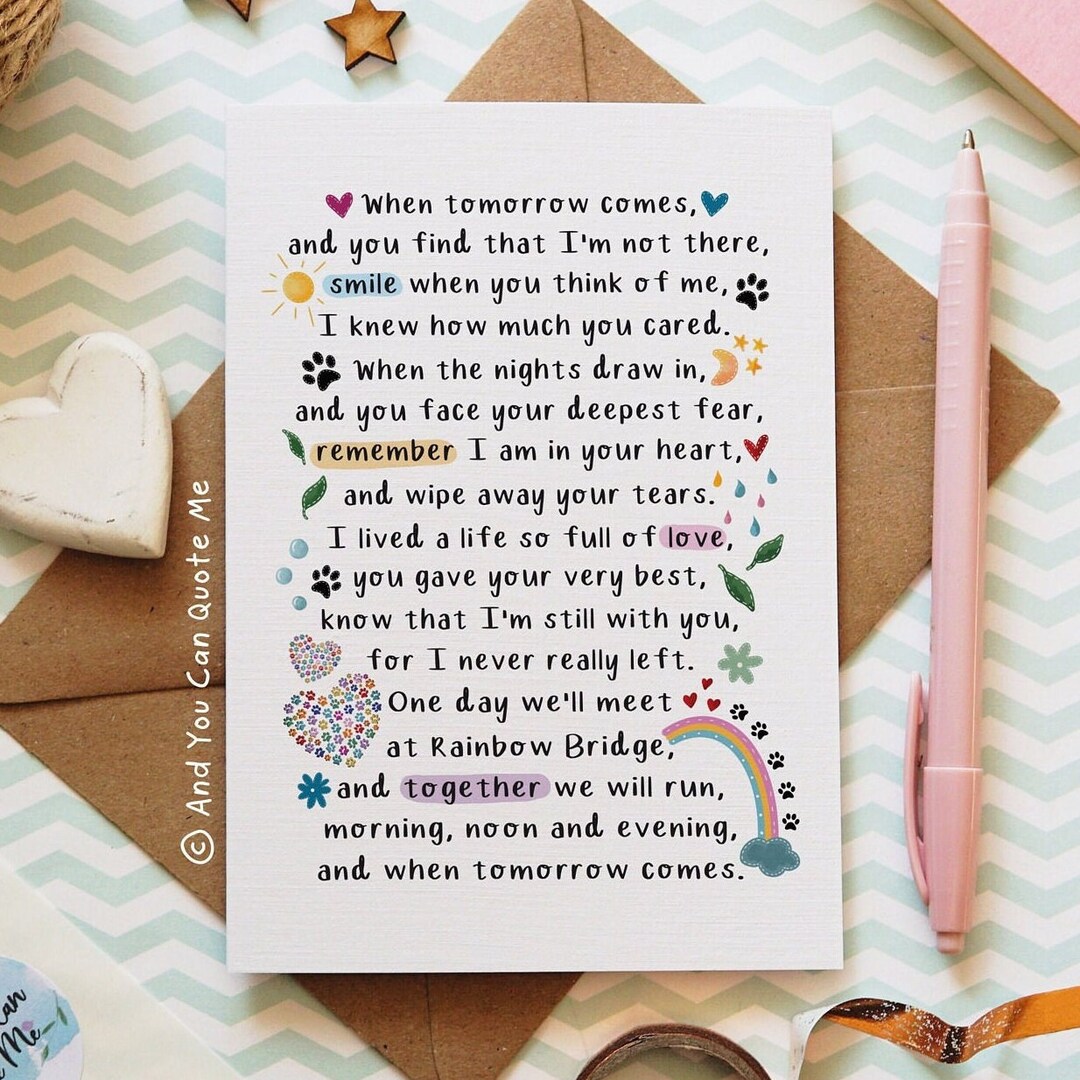 When tomorrow comes,
and you find that I'm not there,
smile when you think of me,
I knew how much you cared.
When the nights draw in,
and you face your deepest fear,
remember I am in your heart,
and wipe away your tears.
I lived a life so full of love,
you gave your very best,
know that I'm still with you,
for I never really left.
One day we'll meet
at Rainbow Bridge,
and together we will run,
morning, noon and evening,
and when tomorrow comes.
© And You Can Quote Me
Me